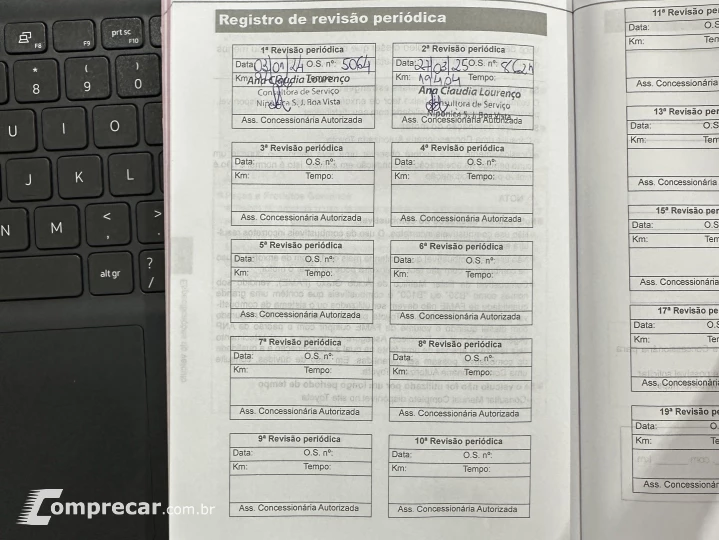 Registro de revisão periódica
1ª Revisão periódica
Data: 03/01/24 O.S. nº: 5064
Km: Tempo:
Ana Claudia Lourenço
Consultora de Serviço
Nipônica S. J. Boa Vista
Ass. Concessionária Autorizada
2ª Revisão periódica
Data: 27/03/25 O.S. nº:
Km: 19404 Tempo:
Ana Claudia Lourenço
Consultora de Serviço
Nipônica S. J. Boa Vista
Ass. Concessionária Autorizada
3ª Revisão periódica
Data: O.S. nº:
Km: Tempo:
Ass. Concessionária Autorizada
4ª Revisão periódica
Data: O.S. nº:
Km: Tempo:
Ass. Concessionária Autorizada
5ª Revisão periódica
Data: O.S. nº:
Km: Tempo:
Ass. Concessionária Autorizada
6ª Revisão periódica
Data: O.S. nº:
Km: Tempo:
Ass. Concessionária Autorizada
7ª Revisão periódica
Data: O.S. nº:
Km: Tempo:
Ass. Concessionária Autorizada
8ª Revisão periódica
Data: O.S. nº:
Km: Tempo:
Ass. Concessionária Autorizada
9ª Revisão periódica
Data: O.S. nº:
Km: Tempo:
Ass. Concessionária Autorizada
10ª Revisão periódica
Data: O.S. nº:
Km: Tempo:
Ass. Concessionária Autorizada
11ª Revisão
Data: O.S
Km:
Ass. Concessionár
13ª Revisão
Data: O.S
Km:
Ass. Concessionár
15ª Revisão
Data: O.S
Km:
Ass. Concessionár
17ª Revisão
Data: O.S
Km:
Ass. Concessionár
19ª Revisão
Data: O.
Km:
Ass. Concessionár
F8
F9
prt sc
F10
* 8
( 9
) 0
U I O
J K L
N M < , > .
alt gr
? /
Comprecar.com.br